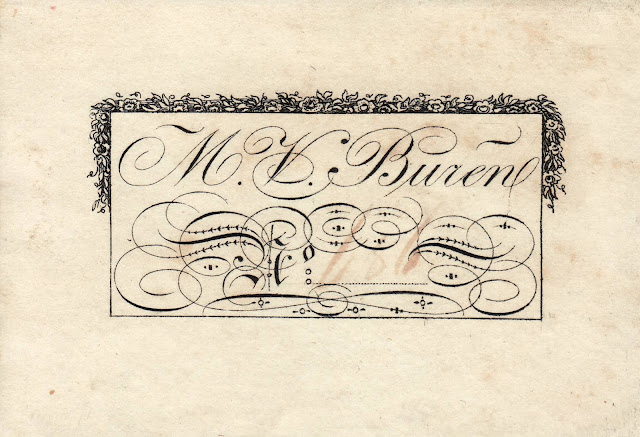 M. V. Buren
Nº